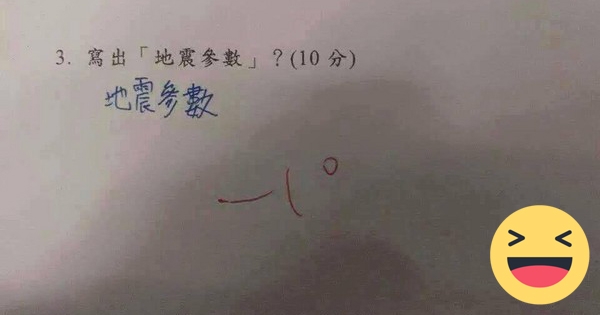 3. 寫出「地震參數」？(10 分)
地震參數
-10